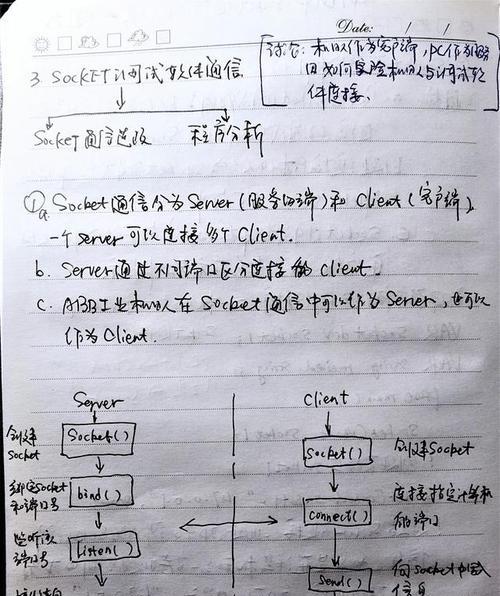 Date: / /
讨论: 机器人作为客户端, PC作为服务
口 如何实验机器人与调试软
件连接.
3. SOCKET调试软件通信
Socket通信 程序分析
① a. Socket通信分为Server(服务器端)和Client(客户端),
一个server可以连接多个Client.
b. Server通过不同端口区分连接的Client.
c. ABB工业机器人在Socket通信中可以作为Server, 也可以
作为Client.
Server Client
创建Socket Socket() Socket() 创建Socket
绑定Socket和端口号 bind() connect() 连接指定计算机的端口
监听该端口号 listen() Send() 向socket中写入信息